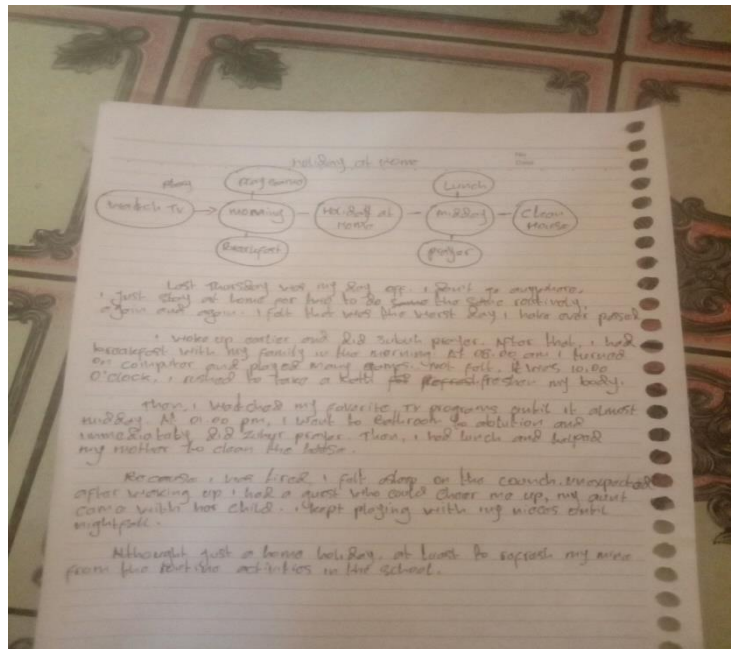 Holiday at Home
No
Date
play
play game
Lunch
Watch TV
morning
Holiday at
House
midday
Clean
House
breakfast
prayer
Last Thursday was my day off. I don't go anywhere,
I Just stay at home and have to do same the same routinely,
again and again. I felt that was the worst day I have ever passed
I woke up earlier and did subuh prayer. After that, I had
breakfast with my family in the morning. At 08.00 am I turned
on computer and played many games. not felt, it was 10.00
O'clock, I rushed to take a bath freshen my body.
Then, I watched my favorite Tv programs until it almost
midday. At 01.00 pm, I went to Bathroom to ablution and
immediately did zuhur prayer. Then, I had lunch and helped
my mother to clean the house.
Because I was tired, I felt asleep on the counch. unexpected
after waking up I had a guest who could cheer me up, my aunt
came with her child. I kept playing with my nieces until
nightfall.
Althought just a home holiday, at least to refresh my mine
from the routine activities in the school.